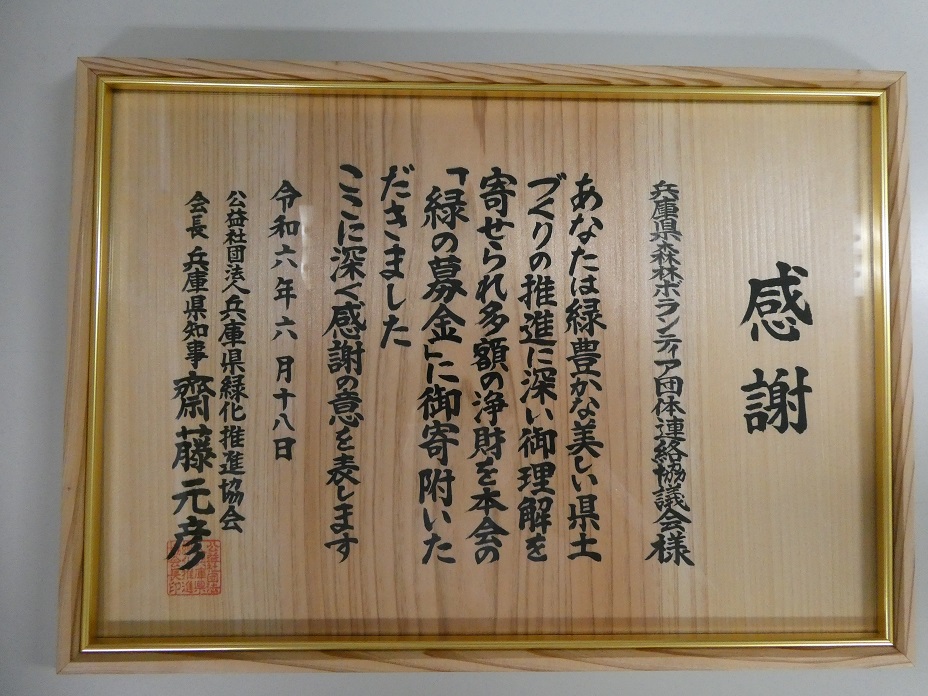 感謝
兵庫県森林ボランティア団体連絡協議会様
あなたは緑豊かな美しい県土
づくりの推進に深い御理解を
寄せられ多額の浄財を本会の
「緑の募金」に御寄附いた
だきました
ここに深く感謝の意を表します
令和六年六月十八日
公益社団法人兵庫県緑化推進協会
会長兵庫県知事齋藤元彦